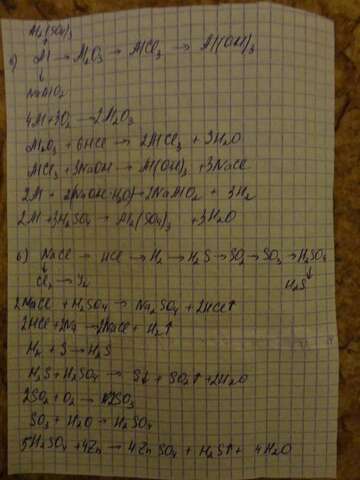 Al₂(SO₄)₃
Al → Al₂O₃ → AlCl₃ → Al(OH)₃
NaAlO₂
4Al + 3O₂ → 2Al₂O₃
Al₂O₃ + 6HCl → 2AlCl₃ + 3H₂O
AlCl₃ + 3NaOH → Al(OH)₃ + 3NaCl
2Al + 2(NaOH·H₂O) → 2NaAlO₂ + 3H₂
2Al + 3H₂SO₄ → Al₂(SO₄)₃ + 3H₂O
б) NaCl → HCl → H₂ → H₂S → SO₂ → SO₃ → H₂SO₄
Cl₂ → I₂ H₂S
2NaCl + H₂SO₄ → Na₂SO₄ + 2HCl↑
2HCl + 2Na → 2NaCl + H₂↑
H₂ + S → H₂S
H₂S + H₂SO₄ → S↓ + SO₂↑ + 2H₂O
2SO₂ + O₂ → 2SO₃
SO₃ + H₂O → H₂SO₄
5H₂SO₄ + 4Zn → 4ZnSO₄ + H₂S↑ + 4H₂O